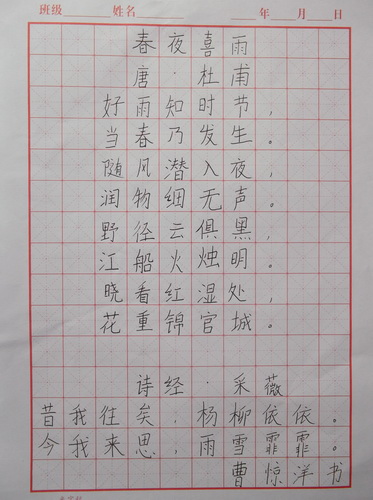 班级 姓名 年 月 日
春夜喜雨
唐·杜甫
好雨知时节，
当春乃发生。
随风潜入夜，
润物细无声。
野径云俱黑，
江船火烛明。
晓看红湿处，
花重锦官城。
诗经·采薇
昔我往矣，杨柳依依。
今我来思，雨雪霏霏。
曹惊洋书